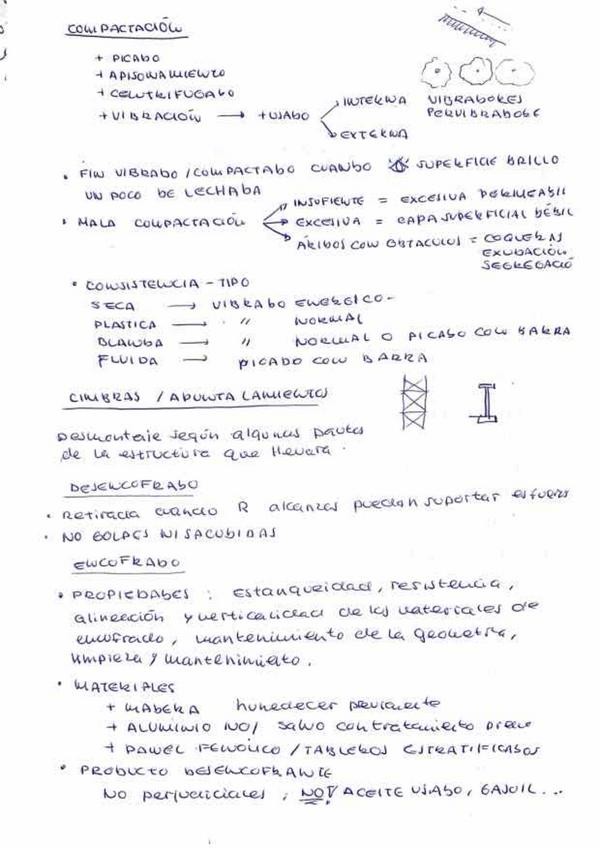 COMPACTACIÓN
+ PICADO
+ APISONAMIENTO
+ CENTRIFUGADO
+ VIBRACIÓN → + USADO
INTERNA VIBRADORES
PERVIBRADORE
EXTERNA
• FIN VIBRADO / COMPACTADO CUANDO SUPERFICIE BRILLO
UN POCO DE LECHADA
• MALA COMPACTACIÓN
INSUFIENTE = EXCESIVA PERMEABIL
EXCESIVA = CAPA SUPERFICIAL DÉBIL
ÁRIDOS CON OBTACULOS = COQUERAS
EXUDACIÓN
SEGREGACIÓ
• CONSISTENCIA - TIPO
SECA → VIBRADO ENERGICO -
PLASTICA → " NORMAL
BLANDA → " NORMAL O PICADO CON BARRA
FLUIDA → PICADO CON BARRA
CIMBRAS / APUNTALAMIENTOS
Desmontaje según algunas pautas
de la estructura que llevara.
DESENCOFRADO
• Retirada cuando R alcanzas puedan suportar esfuerz
• NO GOLPES NI SACUDIDAS
ENCOFRADO
• PROPIEDADES : Estanqueidad, resistencia,
alineación y verticalidad de los materiales de
encofrado, mantenimiento de la geometria,
limpieza y mantenimiento.
• MATERIALES
+ MADERA humedecer previamente
+ ALUMINIO NO / salvo con tratamiento previo
+ PANEL FENOLICO / TABLEROS ESTRATIFICADOS
• PRODUCTO DESENCOFRANTE
NO perjudiciales ; NO! ACEITE USADO, GASOIL...